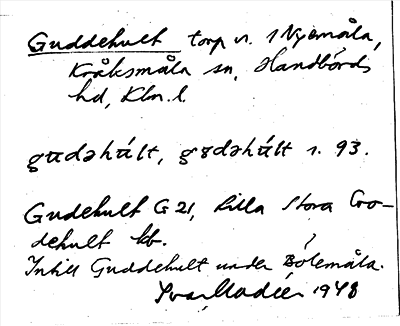 Guddehult torp u. 1 Nyemåla,
Kråksmåla sn, Handbörds
hd, Klm. l.
gudəhúlt, gʊdəhúlt s. 93.
Gudehult G 21, Lilla Stora Go-
dehult kb.
Intill Guddehult under Bölemåla.
Ivar Modéer 1948